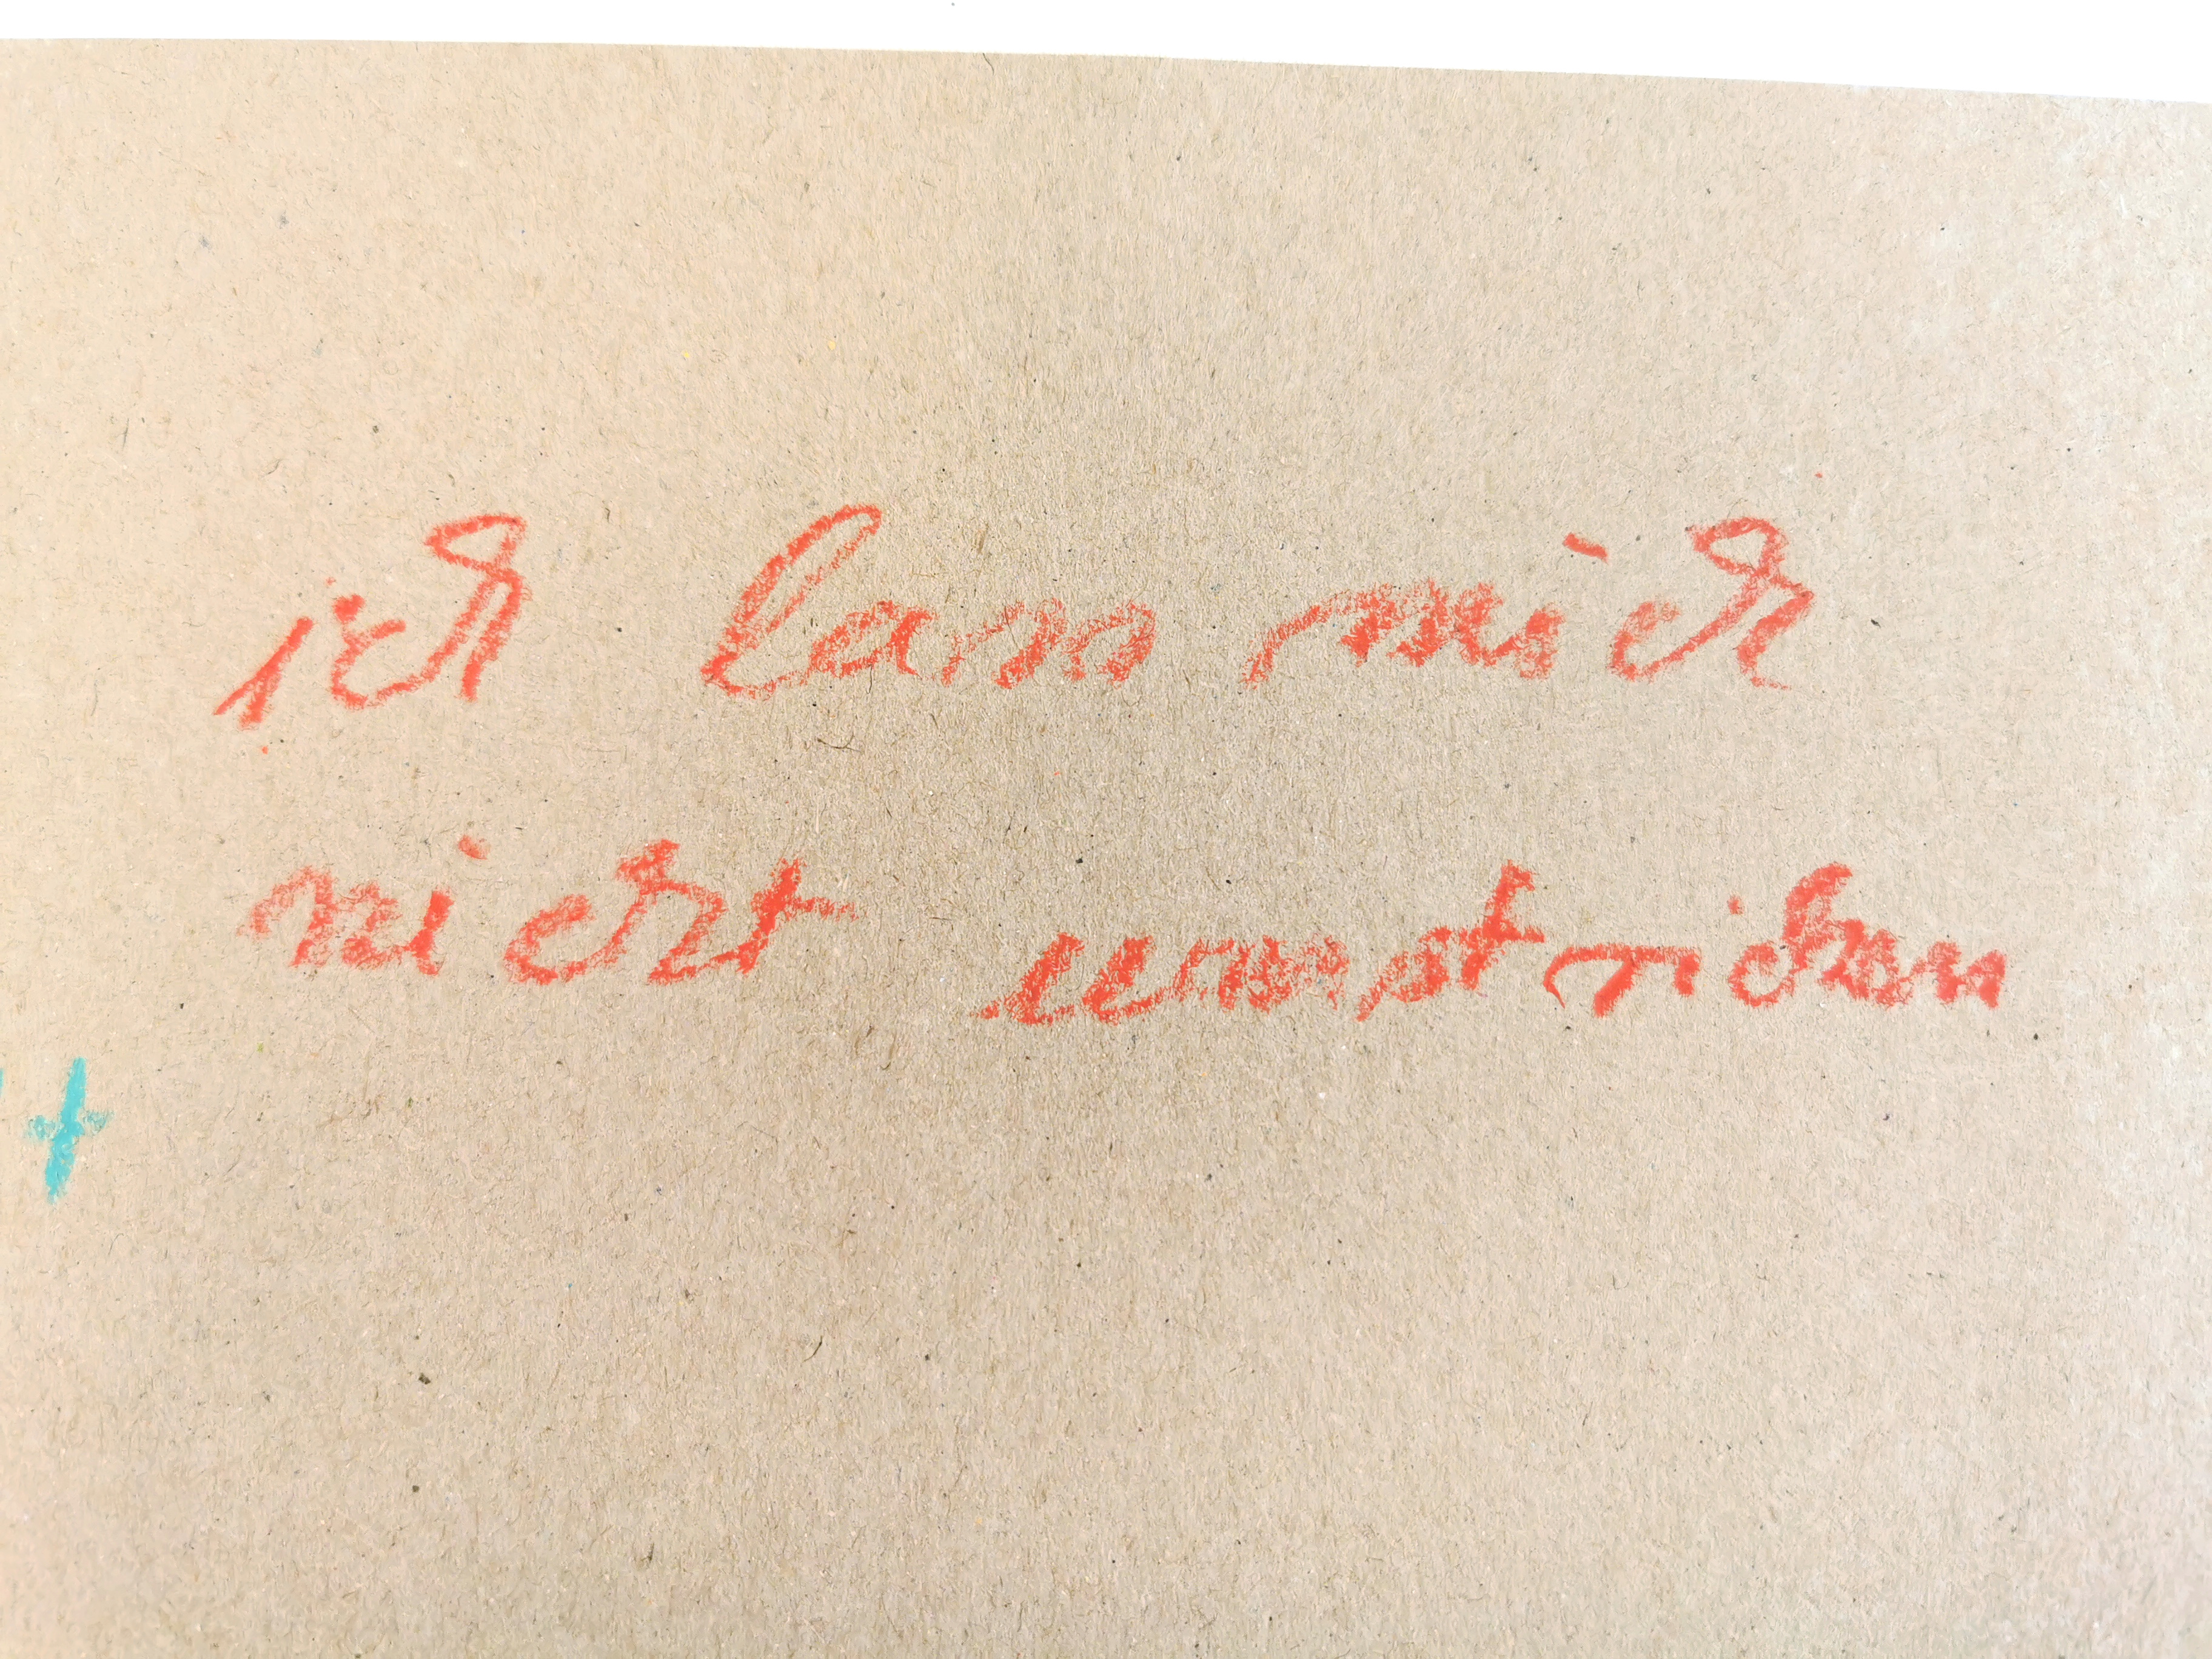 ich lass mich
nicht unnstricken